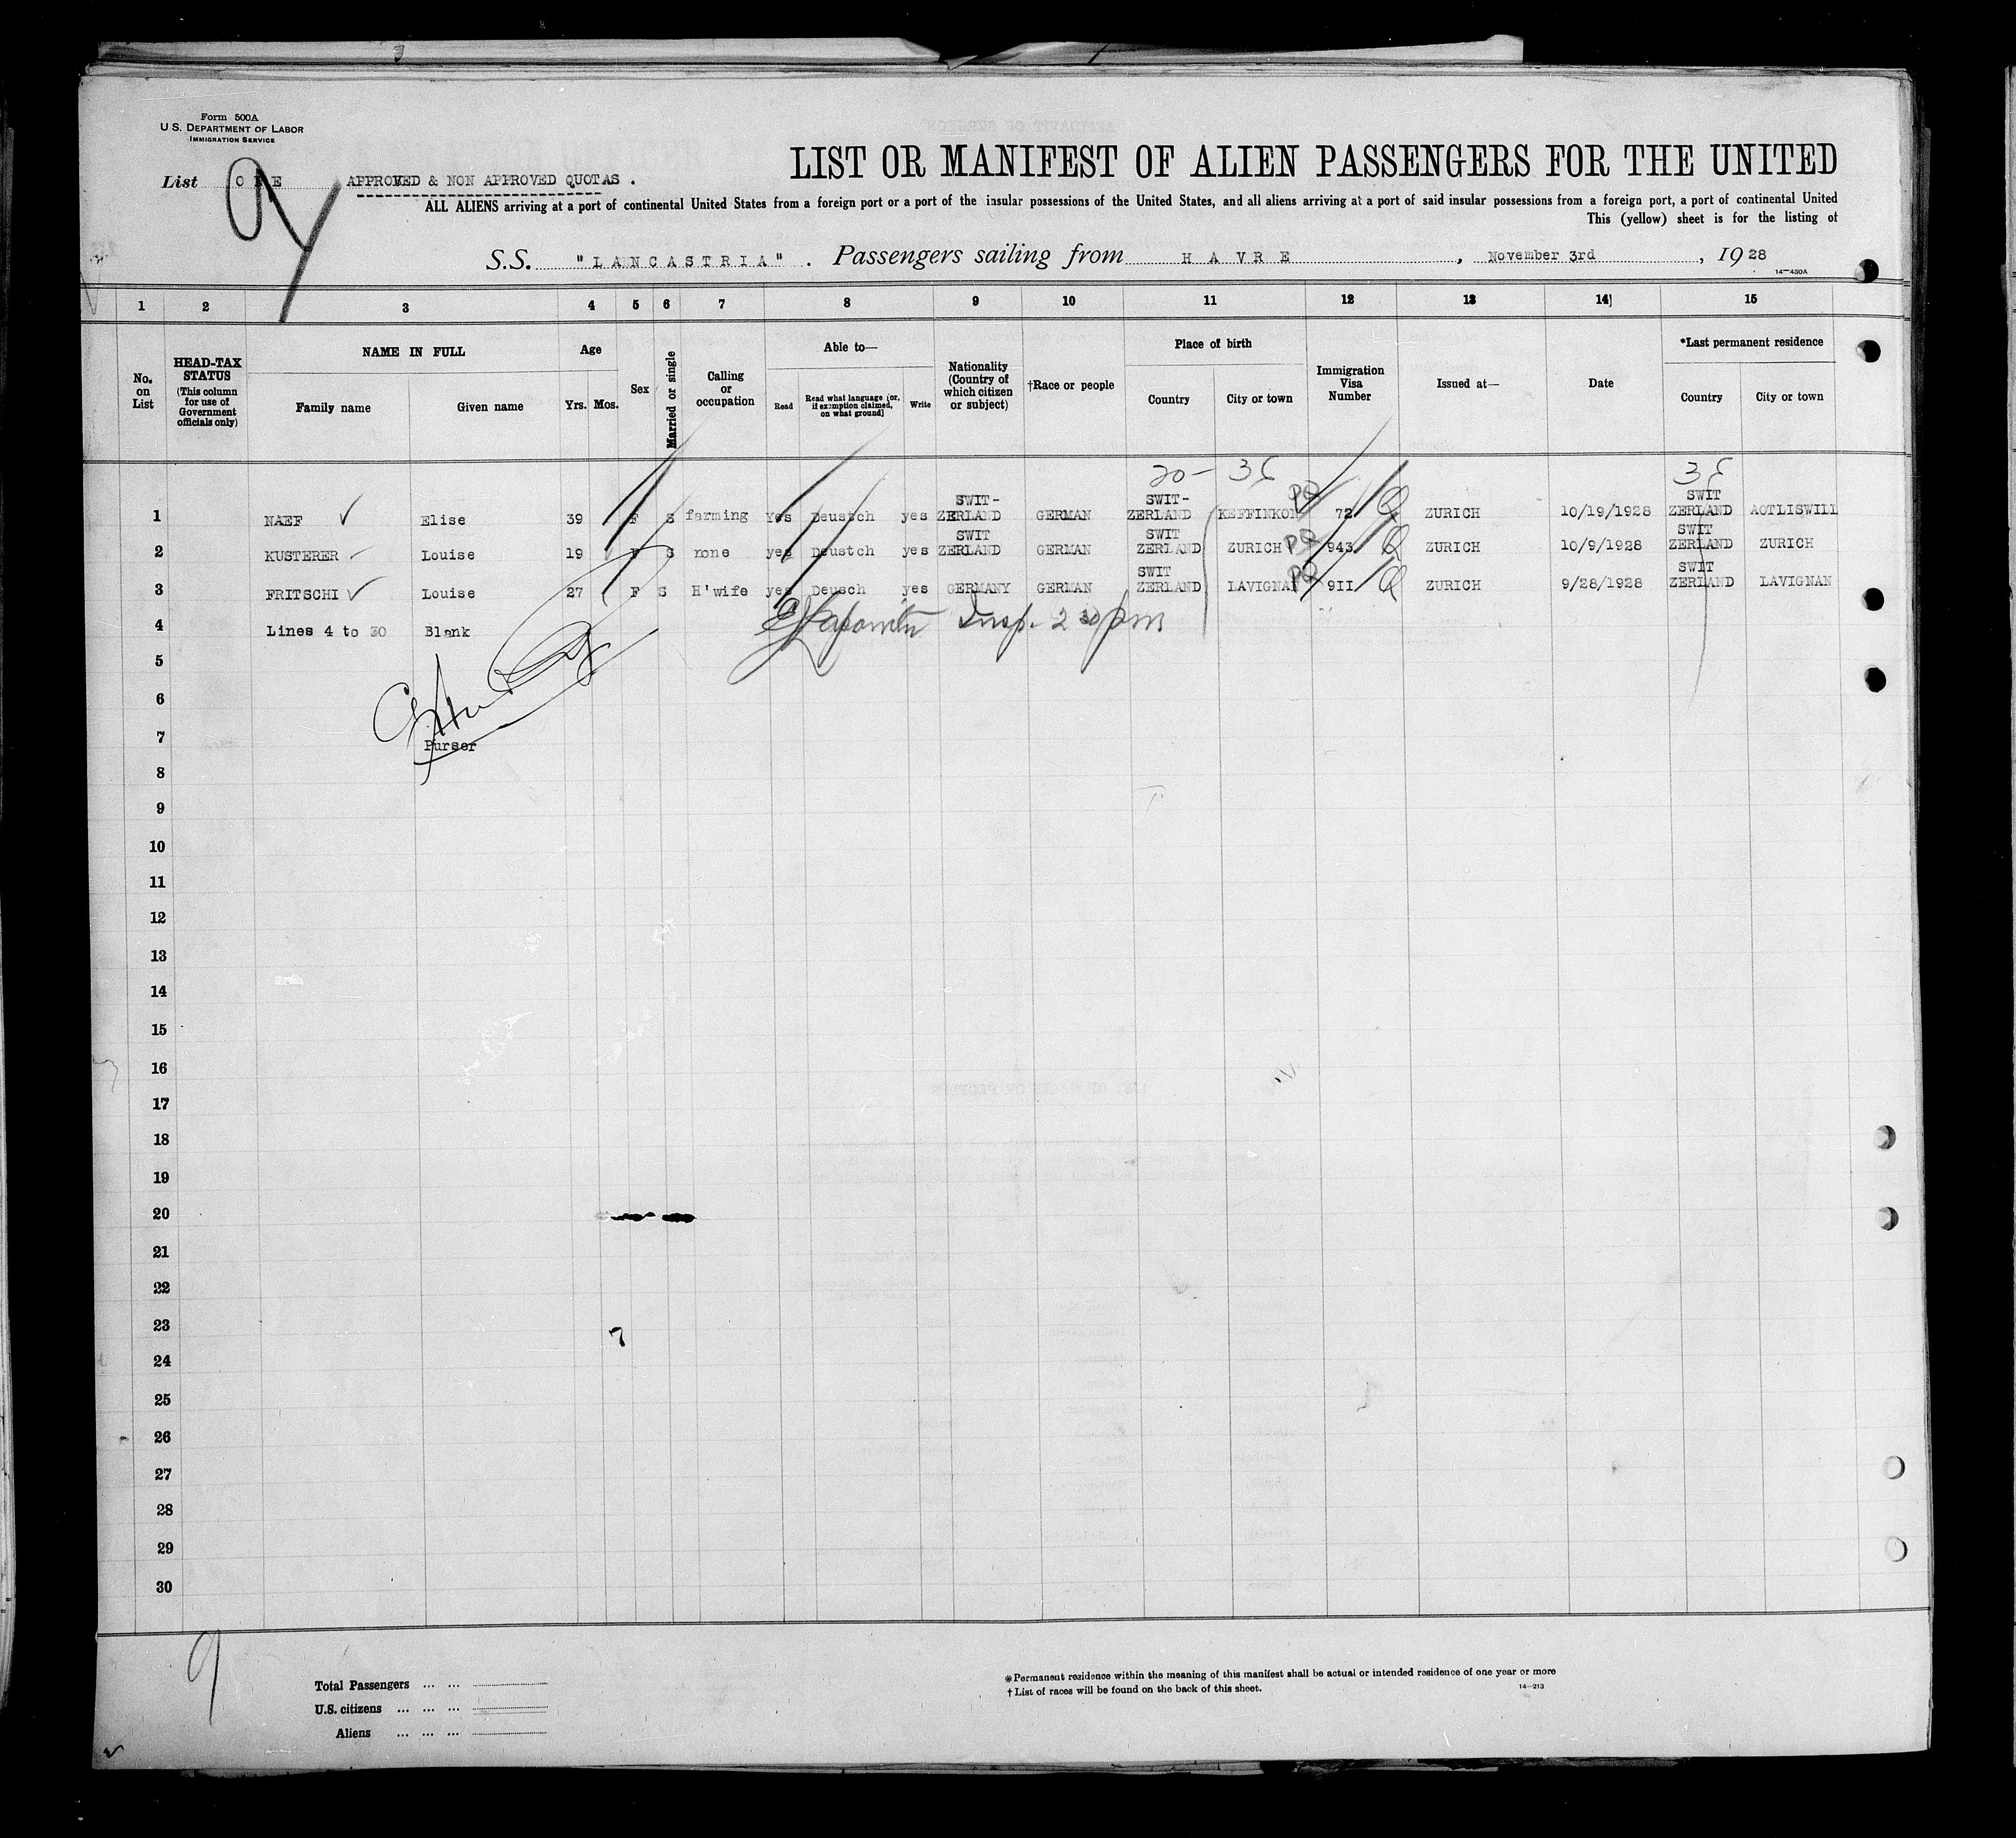 Form 500A
U.S. DEPARTMENT OF LABOR
IMMIGRATION SERVICE
List ONE APPROVED & NON APPROVED QUOTAS .
9
LIST OR MANIFEST OF ALIEN PASSENGERS FOR THE UNITED
ALL ALIENS arriving at a port of continental United States from a foreign port or a port of the insular possessions of the United States, and all aliens arriving at a port of said insular possessions from a foreign port, a port of continental United
This (yellow) sheet is for the listing of
S.S. "LANCASTRIA" . Passengers sailing from HAVRE , November 3rd , 1928
14—430A
1 2 3 4 5 6 7 8 9 10 11 12 13 14 15
No. on List
HEAD-TAX STATUS (This column for use of Government officials only)
NAME IN FULL
Family name Given name
Age
Yrs. Mos.
Sex
Married or single
Calling or occupation
Able to—
Read Read what language [or, if exemption claimed, on what ground] Write
Nationality (Country of which citizen or subject)
†Race or people
Place of birth
Country City or town
Immigration Visa Number
Issued at—
Date
*Last permanent residence
Country City or town
20 - 36 36
1 NAEF Elise 39 F S farming Yes Deustch yes SWIT-ZERLAND GERMAN SWIT-ZERLAND KEFFINKON PQ 72 Q ZURICH 10/19/1928 SWIT ZERLAND AOTLISWILL
2 KUSTERER Louise 19 F S none yes Deustch yes SWIT ZERLAND GERMAN SWIT ZERLAND ZURICH PQ 943 Q ZURICH 10/9/1928 SWIT ZERLAND ZURICH
3 FRITSCHI Louise 27 F S H'wife yes Deusch yes GERMANY GERMAN SWIT ZERLAND LAVIGNAN PQ 9II Q ZURICH 9/28/1928 SWIT ZERLAND LAVIGNAN
4 Lines 4 to 30 Blank Insp. 2 30 pm
5
6
7 Purser
8
9
10
11
12
13
14
15
16
17
18
19
20
21
22
23
24
25
26
27
28
29
30
9
Total Passengers ... ...
U.S. citizens ... ... ...
Aliens ... ... ...
*Permanent residence within the meaning of this manifest shall be actual or intended residence of one year or more
† List of races will be found on the back of this sheet.
14—213